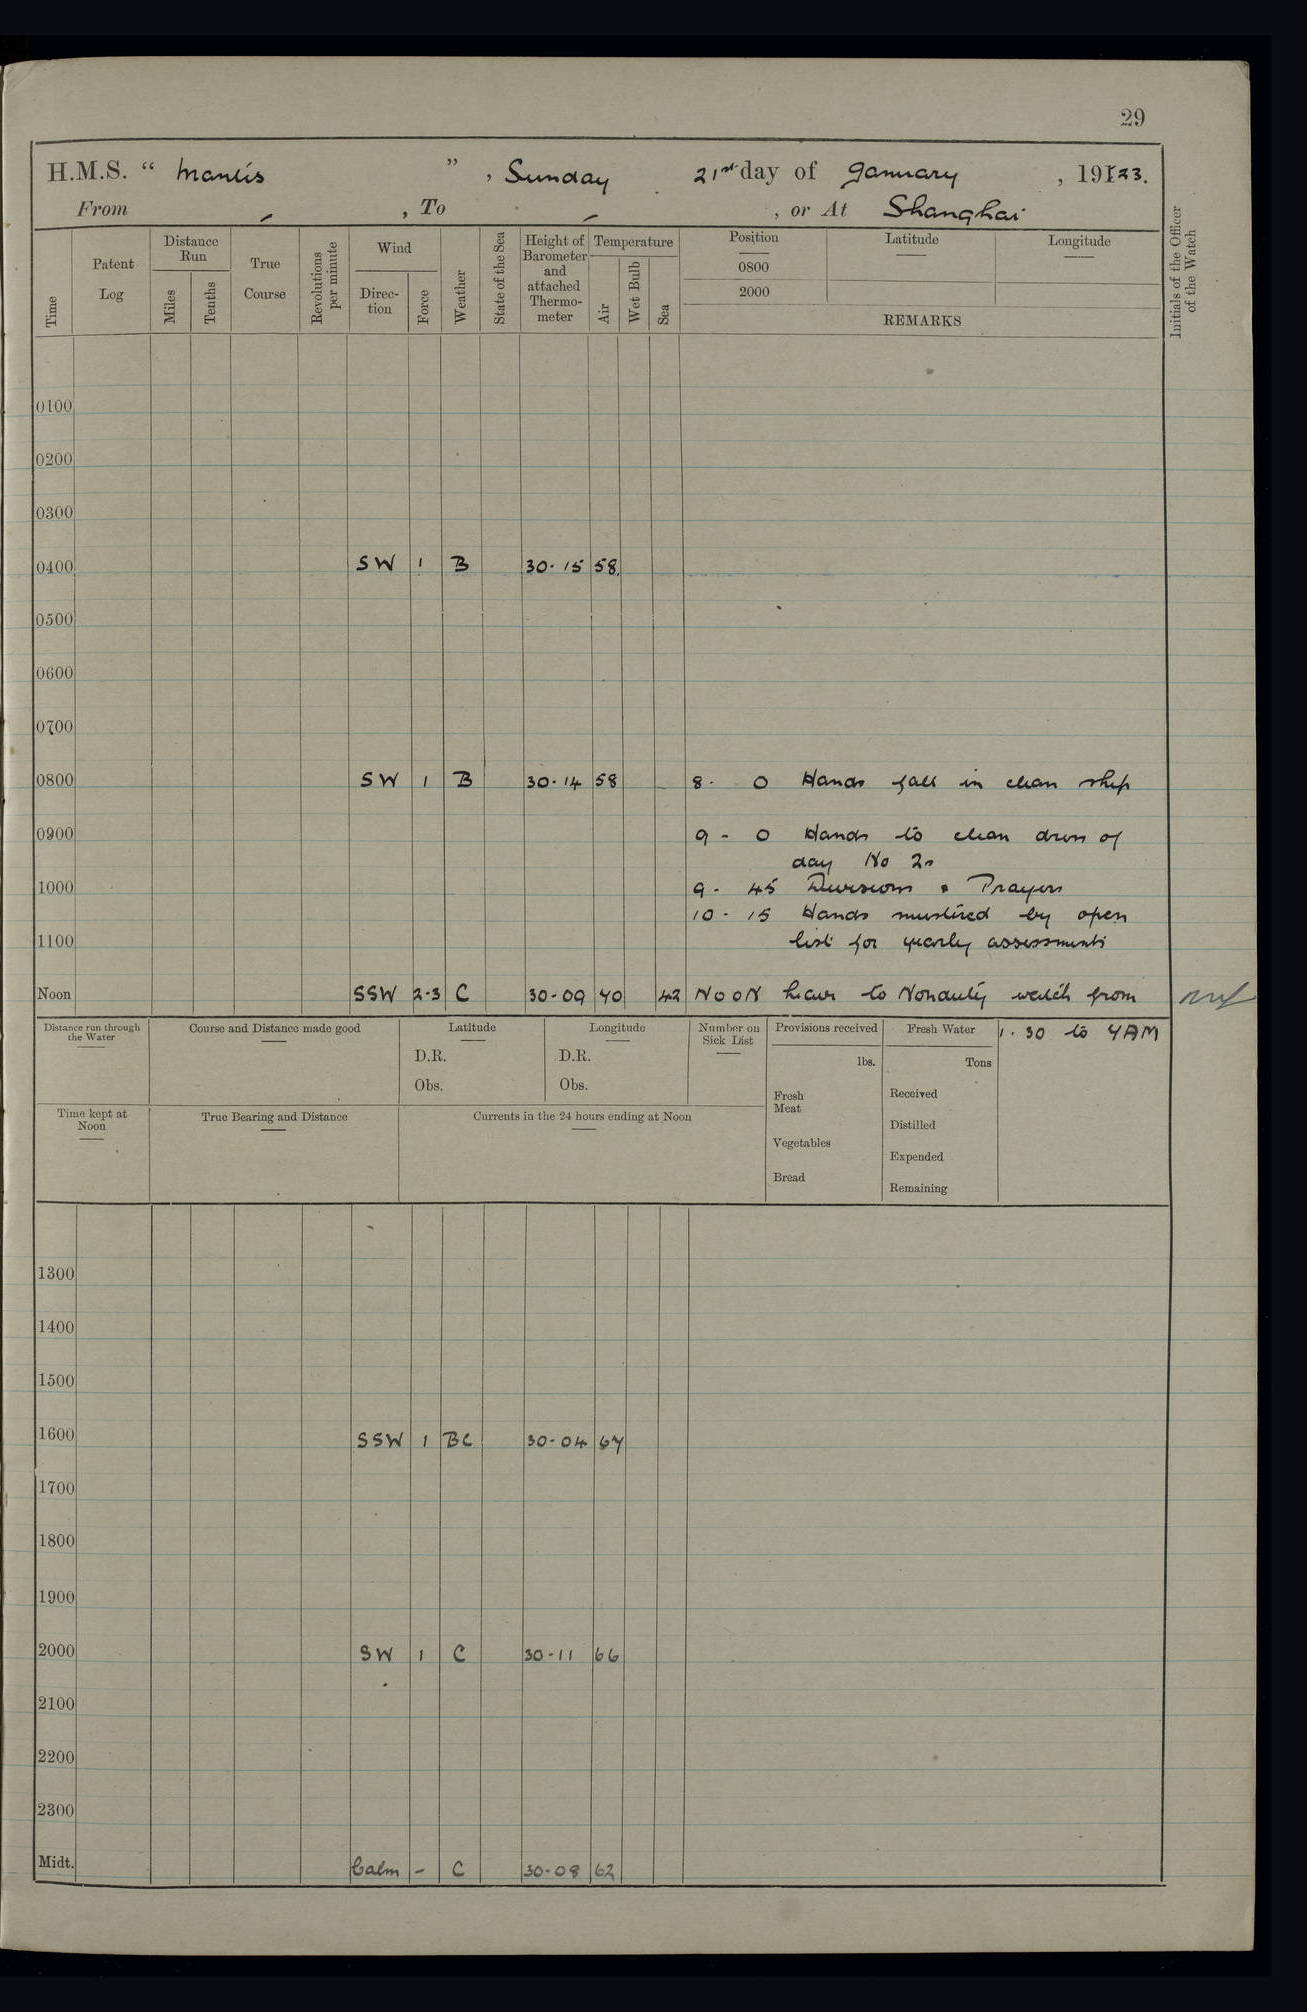 29
H.M.S. “ Mantis ”, Sunday 21st day of January, 19123.
From - , To - , or At Shanghai
Time
Patent Log
Distance Run
Miles
Tenths
True Course
Revolutions per minute
Wind
Direc-tion
Force
Weather
State of the Sea
Height of Barometer and attached Thermo-meter
Temperature
Air
Wet Bulb
Sea
Position
0800
2000
Latitude
Longitude
REMARKS
Initials of the Officer of the Watch
0100
0200
0300
0400 SW 1 B 30·15 58
0500
0600
0700
0800 SW 1 B 30·14 58 8 - 0 Hands fall in clean ship
0900 9 - 0 Hands to clean dress of
day No 2s
1000 9 - 45 Divisions & Prayers
10 - 15 Hands mustered by open
1100 list for yearly assessments
Noon SSW 2-3 C 30-09 70 42 NOON Leave to Nonduty watch from
1·30 to 7AM
Distance run through the Water
Course and Distance made good
Latitude
D.R.
Obs.
Longitude
D.R.
Obs.
Number on Sick List
Provisions received
lbs.
Fresh Meat
Vegetables
Bread
Fresh Water
Tons
Received
Distilled
Expended
Remaining
Time kept at Noon
True Bearing and Distance
Currents in the 24 hours ending at Noon
1300
1400
1500
1600 SSW 1 BC 30-04 67
1700
1800
1900
2000 SW 1 C 30-11 66
2100
2200
2300
Midt. Calm - C 30-08 62